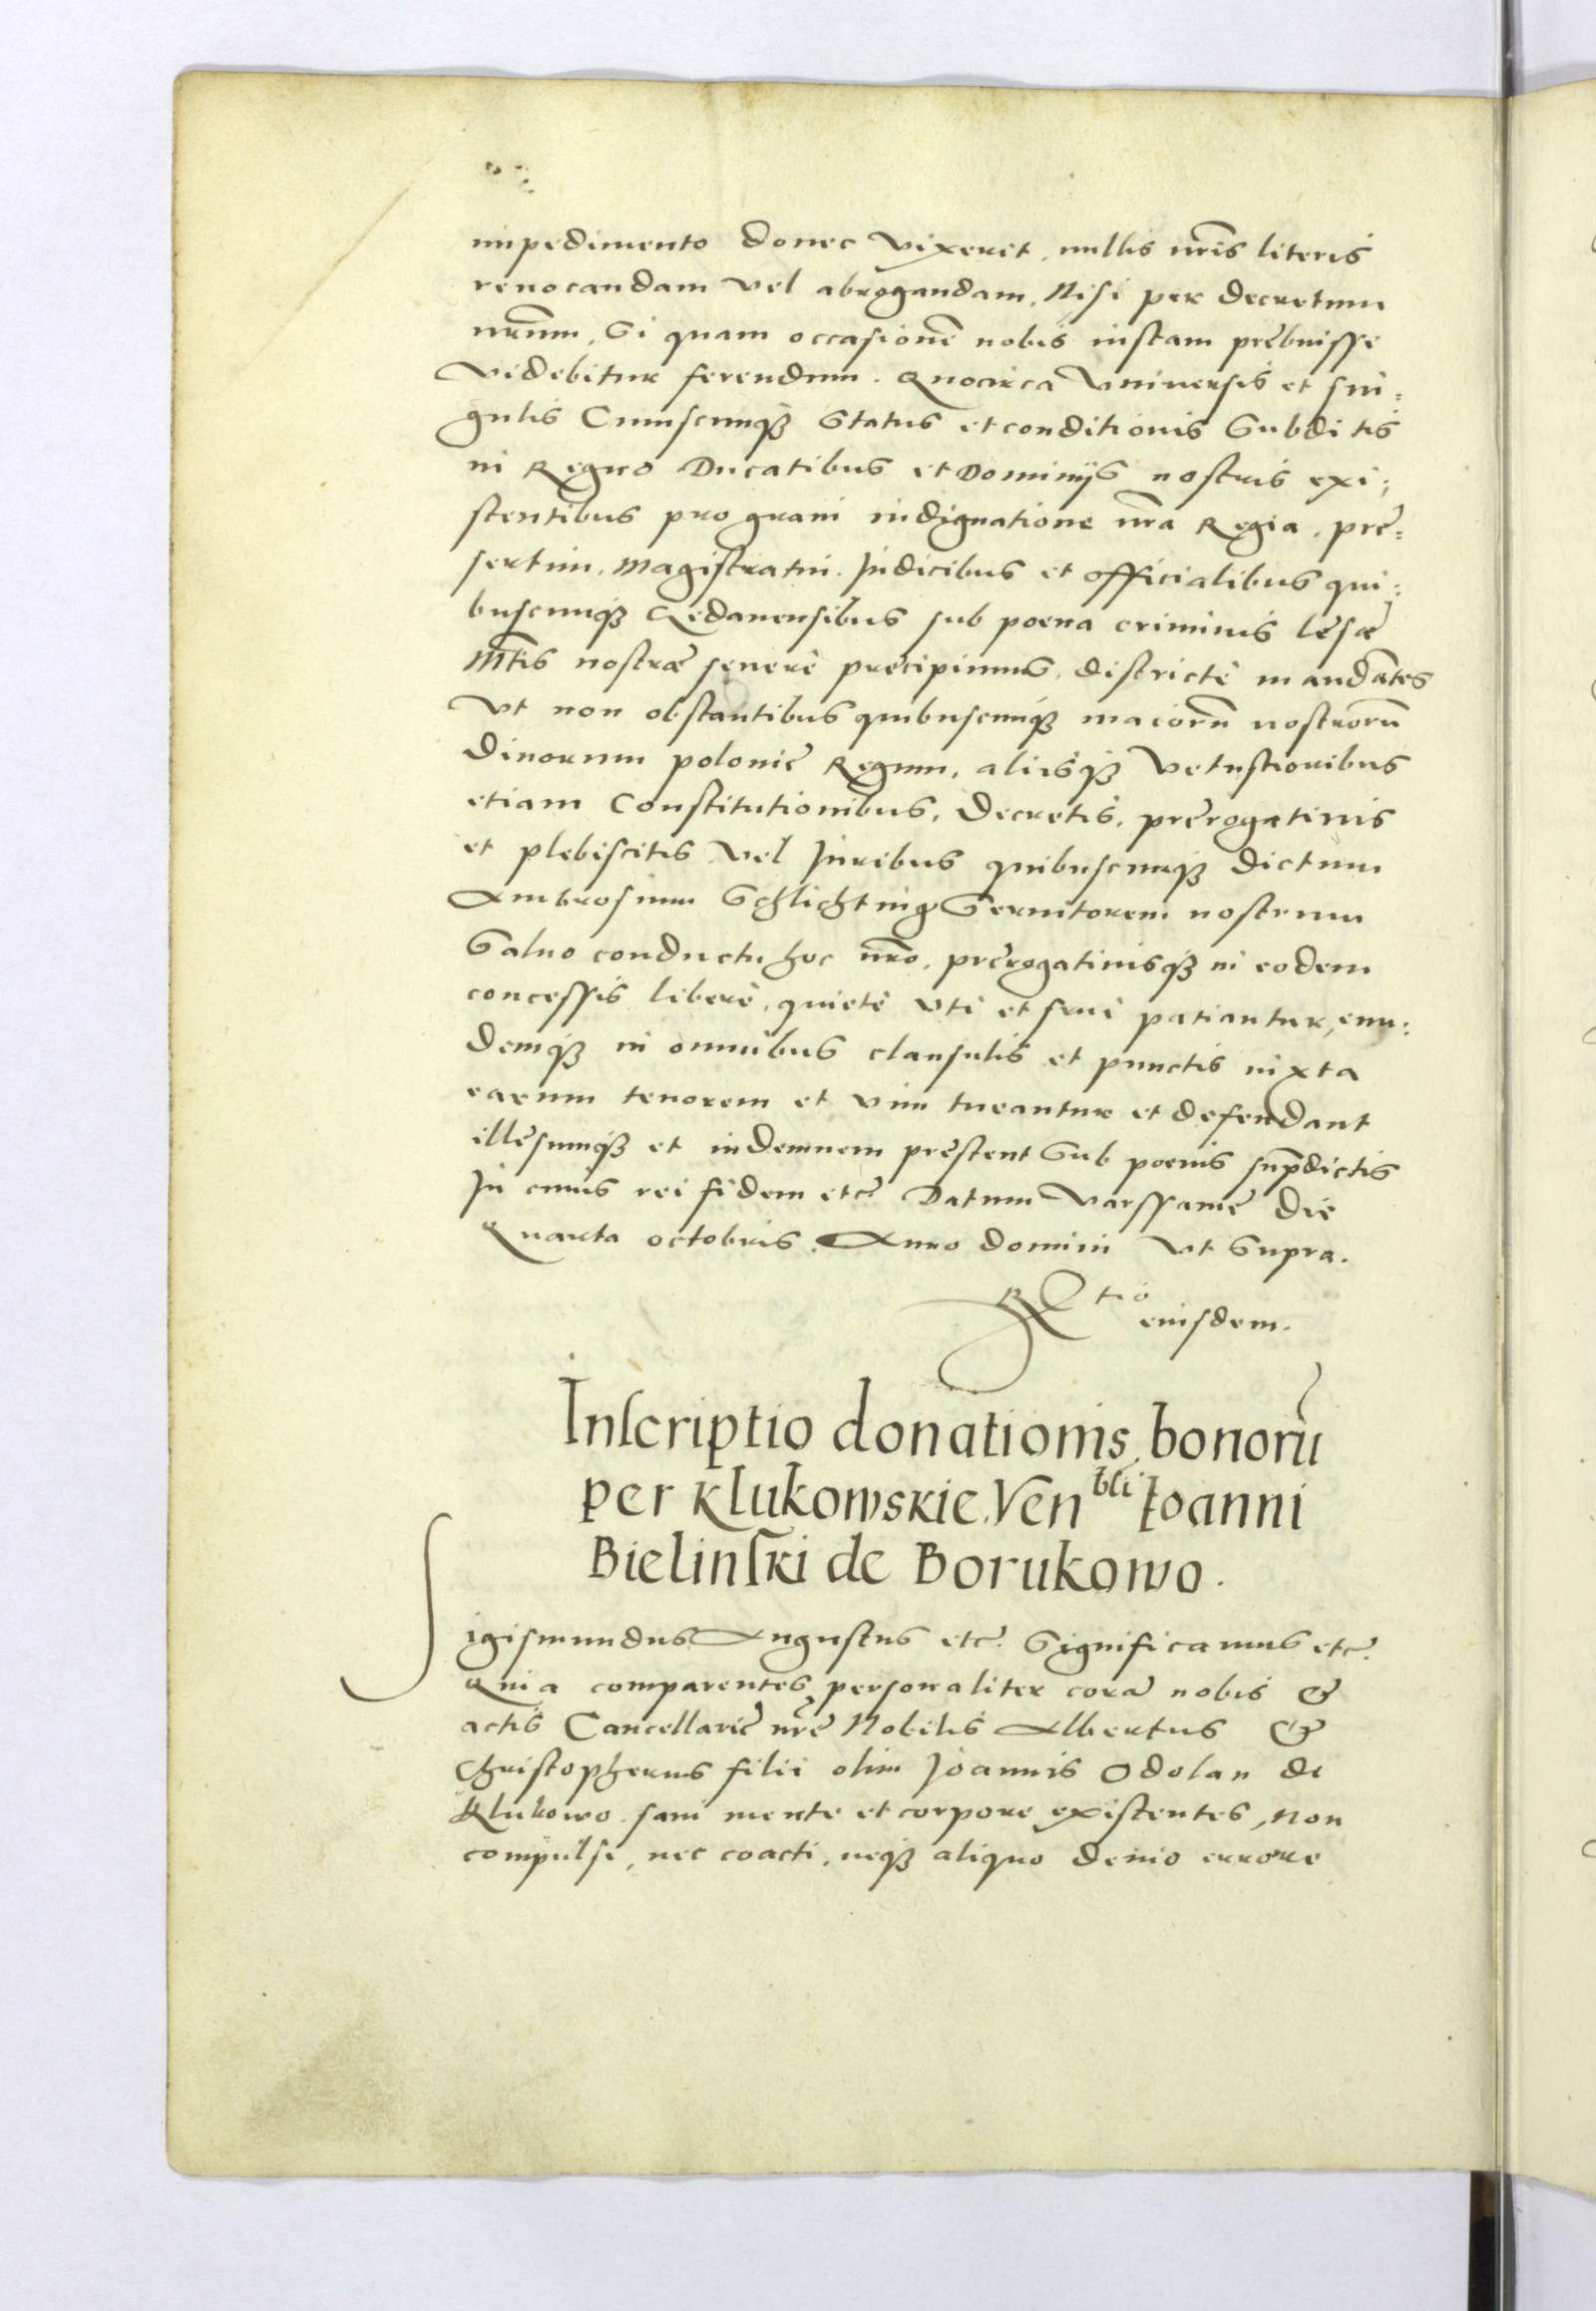 impedimento donec vixerit, nullis nr̃is literis
reuocandam vel abrogandam, Nisi per decretum
nr̃um, Si quam occasionẽ nobis iustam prębuisse
videbitur ferendum. Quocirca Vniuersis et sin:
gulis Cuiuscunqꝫ Status et conditionis Subditis
in Regno Ducatibus et Dominijs nostris exi:
stentibus pro graui indignatione nr̃a Regia, prę:
sertim, Magistratui, Iudicibus et officialibus qui:
buscunqꝫ Gedanensibus sub poena criminis lęsæ
Mt̃is nostræ seuerè pręcipimus, districtè mandãtes
Vt non obstantibus quibuscunqꝫ maiorũ nostrorũ
Diuorum polonię Regum, alijsqꝫ Vetustioribus
etiam Constitutionibus, Decretis, pręrogatiuis
et plebiscitis vel Iuribus quibuscunqꝫ dictum
Ambrosium Schlichting Seruitorem nostrum
Saluo conductu hoc nr̃o, pręrogatiuisqꝫ in eodem
concessis liberè, quietè vti et frui patiantur, eun:
demqꝫ in omnibus clausulis et punctis iuxta
earum tenorem et vim tueantur et defendant
illęsumqꝫ et indemnem pręstent Sub poenis sup̃dictis
In cuius rei fidem etc̃ Datum Varssauię die
Quarta octobris. Anno domini vt Supra.
R͠tio
eiusdem.
Inscriptio donationis bonorũ
per Klukowskie Ven^bli Ioanni
Bielinski de Borukowo.
Sigismundus Augustus etc̃. Significamus etc̃.
Quia comparentes personaliter corã nobis &
actis Cancellarię nr̃ę Nobilis Albertus &
Christopherus filii olim Joannis Odolan de
Klukowo sani mente et corpore existentes, Non
compulsi, nec coacti, neqꝫ aliquo deuio errore